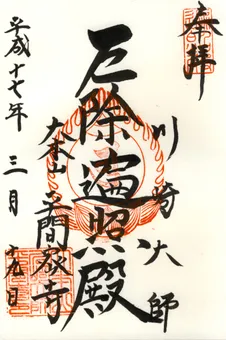 奉拝
川崎大師
厄除遍照殿
大本山平間寺
平成十七年三月十九日